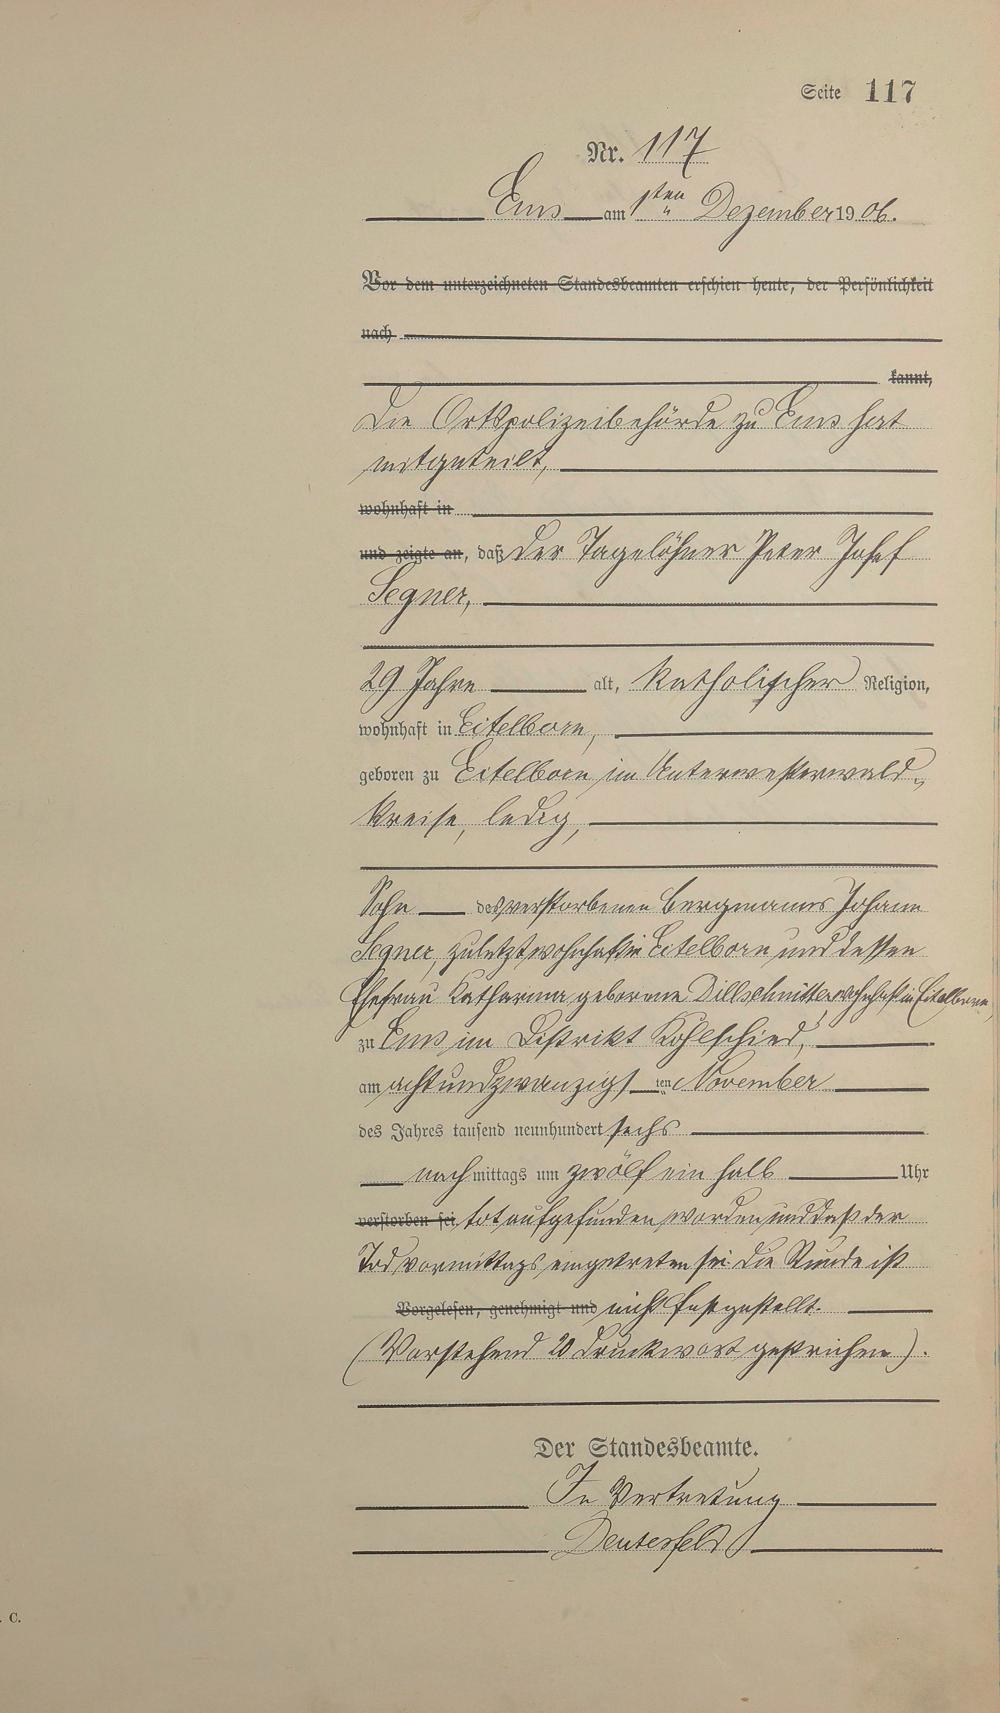 Seite 117
Nr. 117
Ems am 1ten Dezember 1906.
Vor dem unterzeichneten Standesbeamten erschien heute, der Persönlichkeit
nach
kannt,
Die Ortspolizeibehörde zu Ems hat
mitgeteilt,
wohnhaft in
und zeigte an, daß der Tagelöhner Peter Josef
Segner,
29 Jahre alt, katholischer Religion,
wohnhaft in Eitelborn,
geboren zu Eitelborn im Unterwesterwald-
kreise, ledig,
Sohn des verstorbenen Bergmannes Johann
Segner, zuletzt wohnhaft in Eitelborn und dessen
Ehefrau Katharina geborene Dillschnitter, wohnhaft in Eitelborn,
zu Ems im Distrikt Kohlschied,
am achtundzwanzigsten November
des Jahres tausend neunhundert sechs
nachmittags um zwölf ein halb Uhr
verstorben sei, tot aufgefunden worden und daß der
Tod vormittags eingetreten sei. Die Stunde ist
Vorgelesen, genehmigt und nicht festgestellt.
(Vorstehend 20 Druckwort gestrichen).
Der Standesbeamte.
In Vertretung
C.